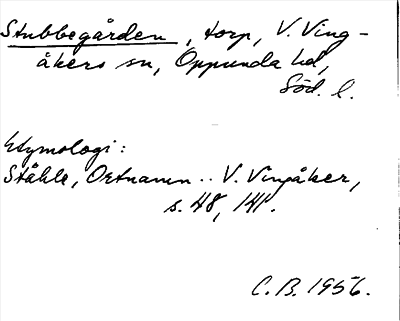 Stubbegården, torp, V. Ving-
åkers sn, Oppunda hd,
Söd. l.
Etymologi:
Ståhle, Ortnamn .. V. Vingåker,
s. 48, 141.
C.B. 1956.